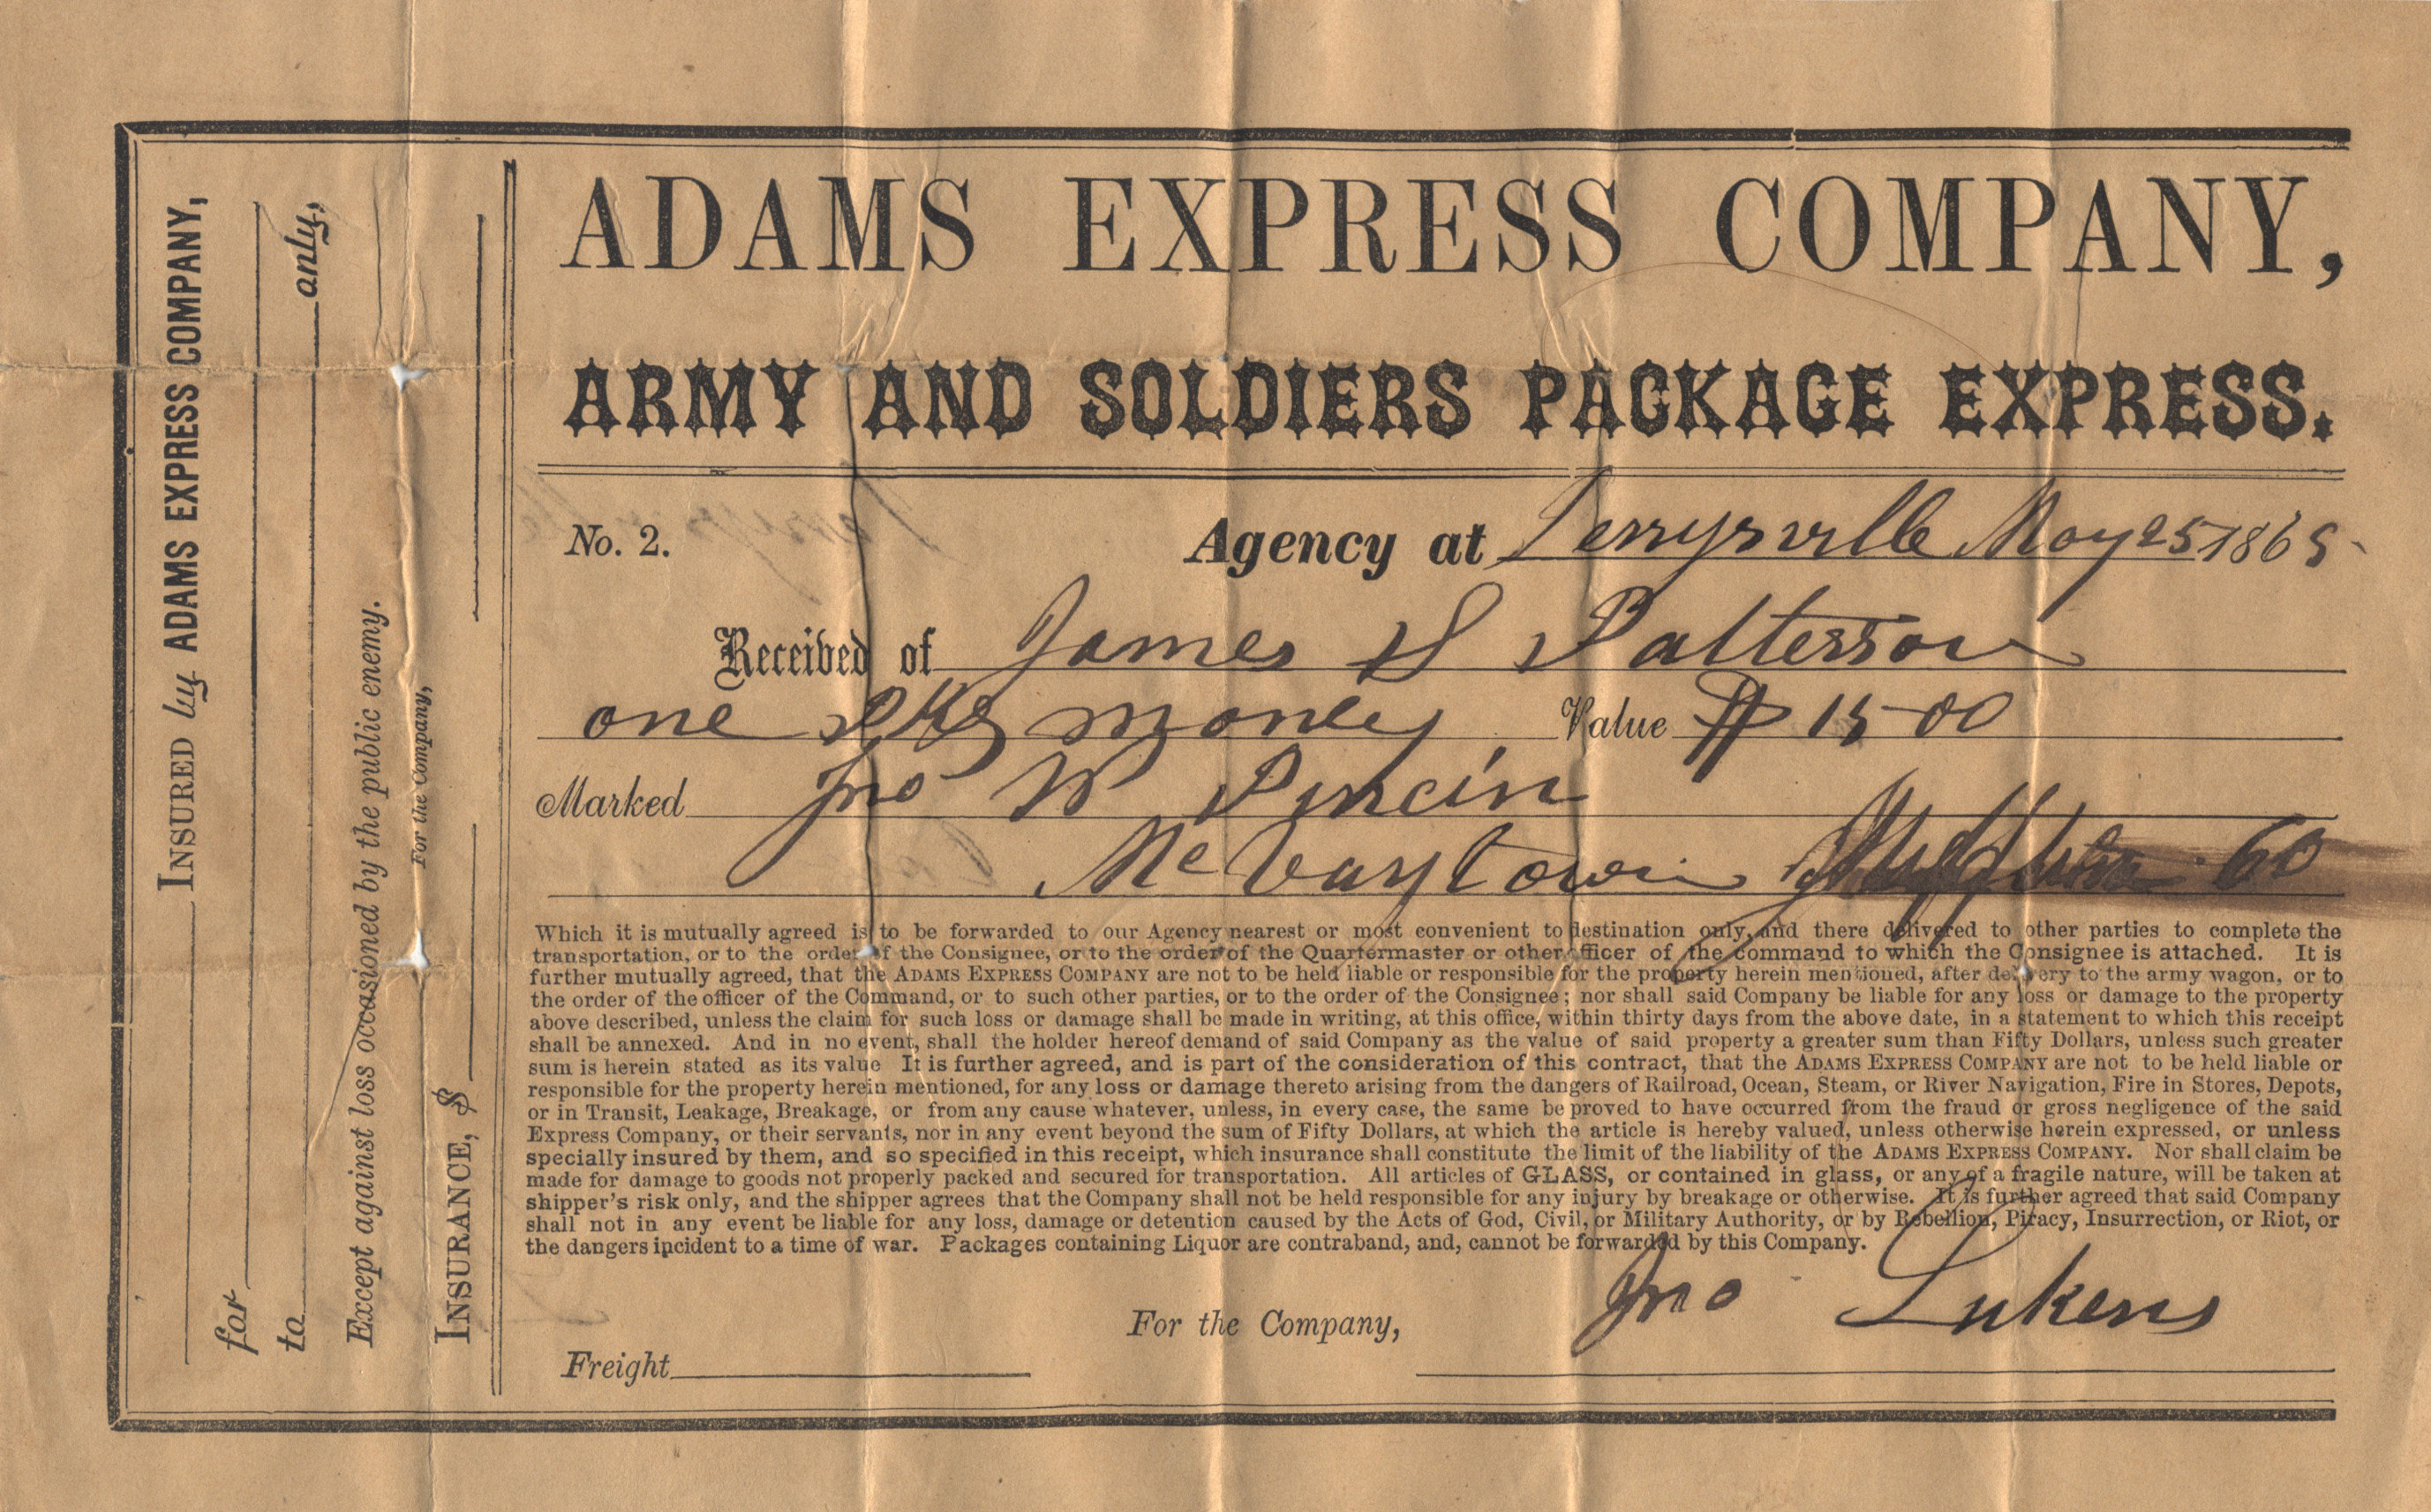 ADAMS EXPRESS COMPANY,
ARMY AND SOLDIERS PACKAGE EXPRESS.
No. 2. Agency at Perrysville May 25 1865
Received of James S Patterson
one pkg money Value $ 1500
Marked Jno W
McVaytown 60
Which it is mutually agreed is to be forwarded to our Agency nearest or most convenient to destination only, and there delivered to other parties to complete the
transportation, or to the order of the Consignee, or to the order of the Quartermaster or other officer of the command to which the Consignee is attached. It is
further mutually agreed, that the ADAMS EXPRESS COMPANY are not to be held liable or responsible for the property herein mentioned, after delivery to the army wagon, or to
the order of the officer of the Command, or to such other parties, or to the order of the Consignee; nor shall said Company be liable for any loss or damage to the property
above described, unless the claim for such loss or damage shall be made in writing, at this office, within thirty days from the above date, in a statement to which this receipt
shall be annexed. And in no event, shall the holder hereof demand of said Company as the value of said property a greater sum than Fifty Dollars, unless such greater
sum is herein stated as its value It is further agreed, and is part of the consideration of this contract, that the ADAMS EXPRESS COMPANY are not to be held liable or
responsible for the property herein mentioned, for any loss or damage thereto arising from the dangers of Railroad, Ocean, Steam, or River Navigation, Fire in Stores, Depots,
or in Transit, Leakage, Breakage, or from any cause whatever, unless, in every case, the same be proved to have occurred from the fraud or gross negligence of the said
Express Company, or their servants, nor in any event beyond the sum of Fifty Dollars, at which the article is hereby valued, unless otherwise herein expressed, or unless
specially insured by them, and so specified in this receipt, which insurance shall constitute the limit of the liability of the ADAMS EXPRESS COMPANY. Nor shall claim be
made for damage to goods not properly packed and secured for transportation. All articles of GLASS, or contained in glass, or any of a fragile nature, will be taken at
shipper's risk only, and the shipper agrees that the Company shall not be held responsible for any injury by breakage or otherwise. It is further agreed that said Company
shall not in any event be liable for any loss, damage or detention caused by the Acts of God, Civil, or Military Authority, or by Rebellion, Piracy, Insurrection, or Riot, or
the dangers incident to a time of war. Packages containing Liquor are contraband, and, cannot be forwarded by this Company.
For the Company, Jno Lukens
Freight
INSURED by ADAMS EXPRESS COMPANY,
for
to only,
Except against loss occasioned by the public enemy.
For the Company,
INSURANCE, $